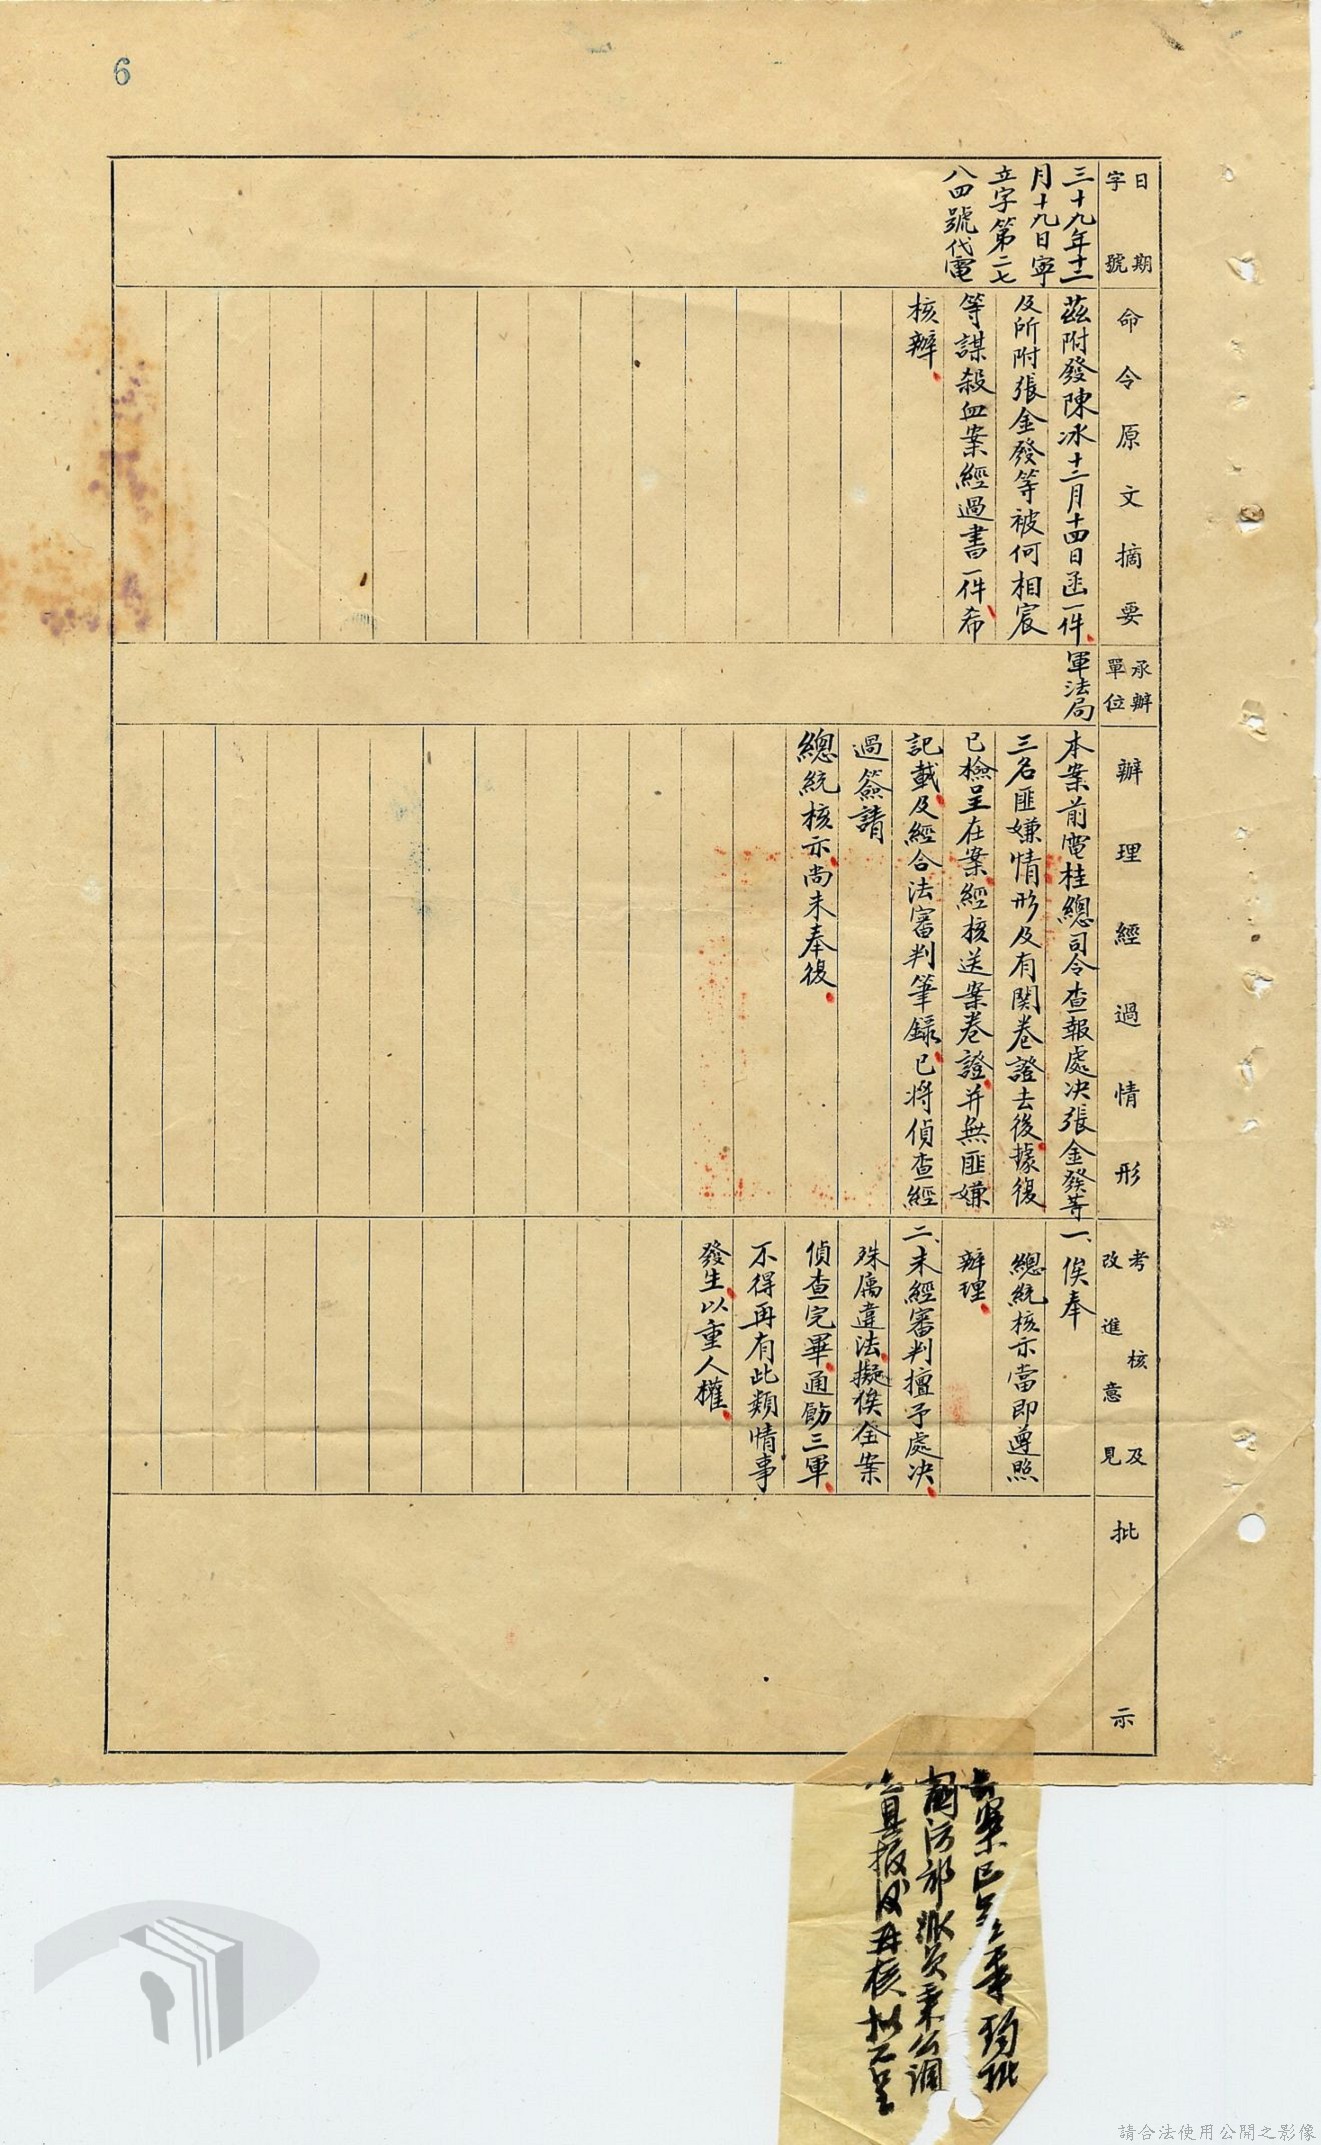 6
日期
字號
三十九年十二
月十九日寧
立字第二七
八四號代電
命令原文摘要
茲附發陳冰十二月十四日函一件、
及所附張金發等被何相宸
等謀殺血案經過書一件希
核辦、
承辦
單位
軍法局
辦理經過情形
本案前電桂總司令查報處決張金發等
三名匪嫌情形及有関卷證去後據復
已檢呈在案經核送案卷證、并無匪嫌
記載、及經合法審判筆錄、已將偵查經
過簽請
總統核示尚未奉復、
考核及
改進意見
一、俟奉
總統核示當即遵照
辦理、
二、未經審判擅予處決、
殊屬違法、擬俟全案
偵查完畢、通飭三軍、
不得再有此類情事
發生、以重人權、
批示
案已奉 鈞批
國防部派員秉公調
查具報後再核擬 呈
請合法使用公開之影像